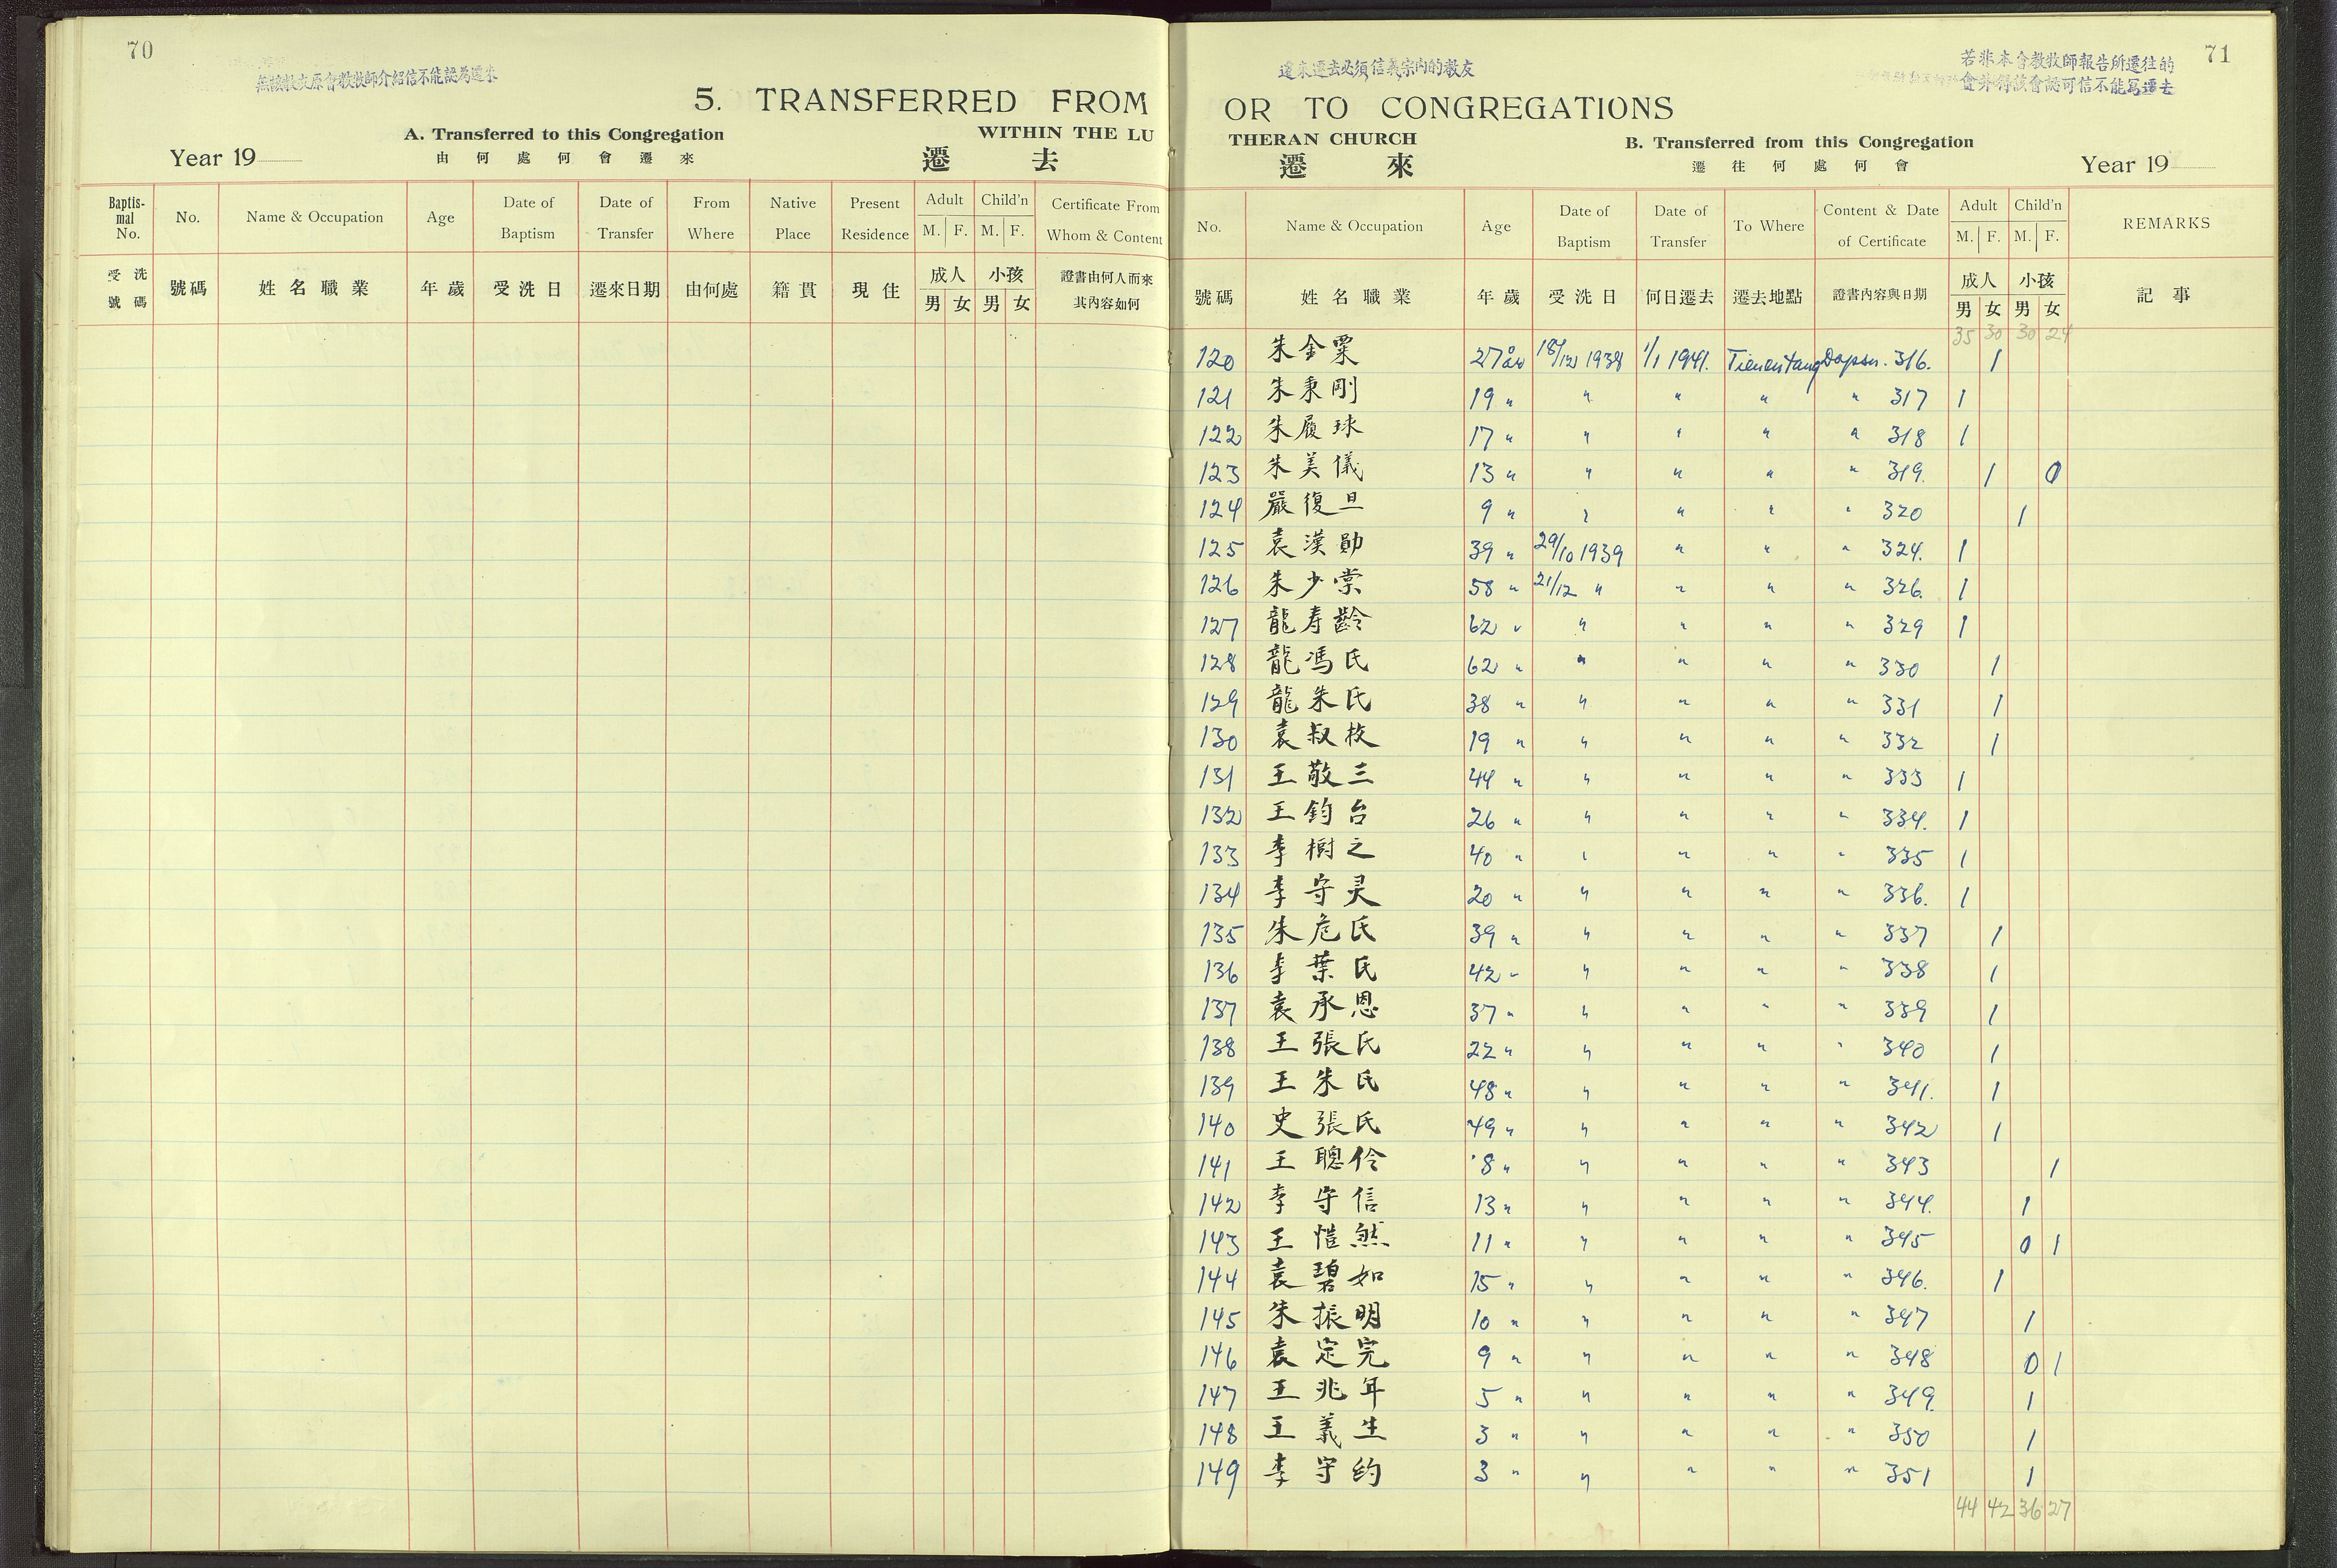 70
無該教友原會教牧師介紹信不能認為遷來
5. TRANSFERRED FROM
A. Transferred to this Congregation
WITHIN THE LU
Year 19
由何處何會遷來
遷去
Baptismal No. No. Name & Occupation Age Date of Baptism Date of Transfer From Where Native Place Present Residence Adult M. F. Child'n M. F. Certificate From Whom & Content
受洗號碼 號碼 姓名職業 年歲 受洗日 遷來日期 由何處 籍貫 現住 成人 男 女 小孩 男 女 證書由何人而來其內容如何
71
遷來遷去必須信義宗內的教友
若非本會教牧師報告所遷往的
會并得該會認可信不能寫遷去
OR TO CONGREGATIONS
THERAN CHURCH
B. Transferred from this Congregation
遷來
遷往何處何會
Year 19
No. Name & Occupation Age Date of Baptism Date of Transfer To Where Content & Date of Certificate Adult M. F. Child'n M. F. REMARKS
號碼 姓名職業 年歲 受洗日 何日遷去 遷去地點 證書內容與日期 成人 男 女 小孩 男 女 記事
35 30 30 24
120 朱金粟 27 18/12 1938 1/1 1941. Dopsn. 316. 1
121 朱秉剛 19 " " " " " 317 1
122 朱履球 17 " " " " " 318 1
123 朱美儀 13 " " " " " 319. 1 0
124 嚴復旦 9 " " " " " 320 1
125 袁漢勛 39 " 29/10 1939 " " " 324. 1
126 朱少棠 58 " 21/12 " " " " 326. 1
127 龍寿齡 62 " " " " " 329 1
128 龍馮氏 62 " " " " " 330 1
129 龍朱氏 38 " " " " " 331 1
130 袁叔枝 19 " " " " " 332 1
131 王敬三 44 " " " " " 333 1
132 王鈞台 26 " " " " " 334. 1
133 李樹之 40 " " " " " 335 1
134 李守灵 20 " " " " " 336. 1
135 朱危氏 39 " " " " " 337 1
136 李葉氏 42 " " " " " 338 1
137 袁承恩 37 " " " " " 339 1
138 王張氏 22 " " " " " 340 1
139 王朱氏 48 " " " " " 341. 1
140 史張氏 49 " " " " " 342 1
141 王聰伶 8 " " " " " 343 1
142 李守信 13 " " " " " 344. 1
143 王愷然 11 " " " " " 345 0 1
144 袁碧如 15 " " " " " 346. 1
145 朱振明 10 " " " " " 347 1
146 袁定完 9 " " " " " 348 0 1
147 王兆年 5 " " " " " 349. 1
148 王義生 3 " " " " " 350 1
149 李守约 3 " " " " " 351 1
44 42 36 27